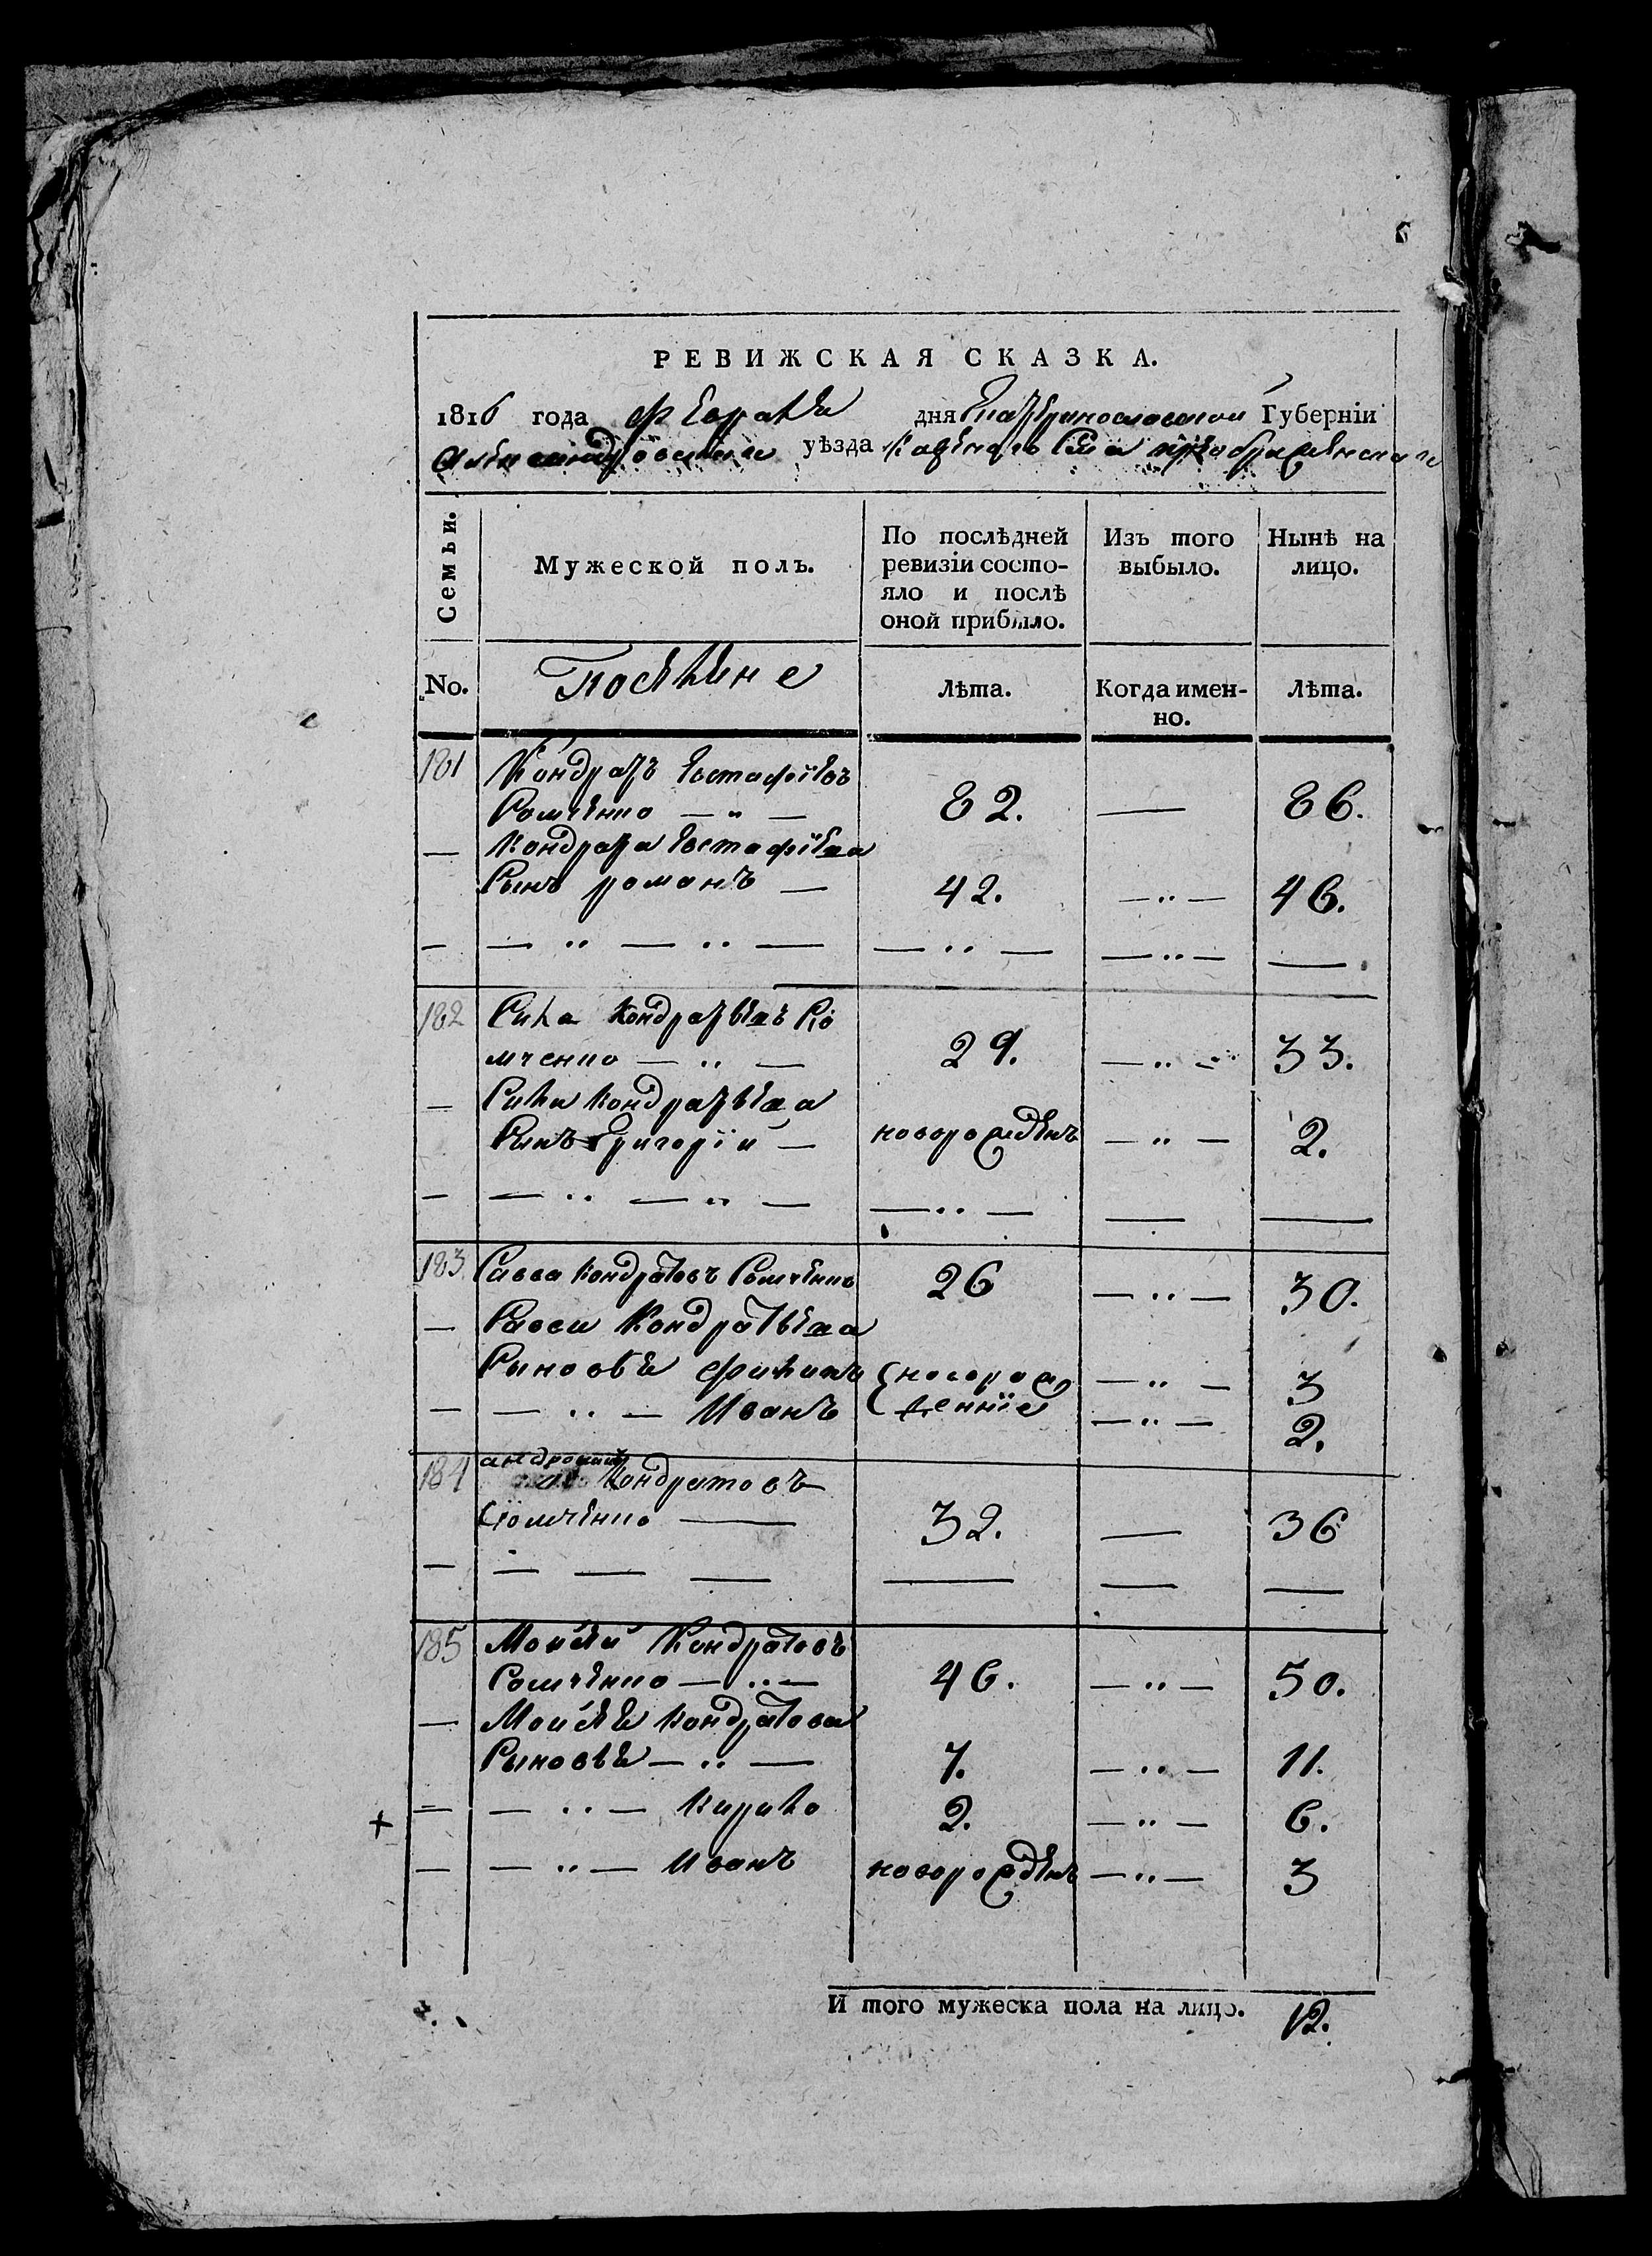 РЕВИЖСКАЯ СКАЗКА.
1816 года февраля дня Екатеринославской Губерніи
Александровскаго уѣзда Казеннаго Села преображенскаго
Семьи. Мужеской полъ. По послѣдней ревизіи состо-яло и послѣ оной прибыло. Изъ того выбыло. Нынѣ на лицо.
No. Лѣта. Когда имен-но. Лѣта.
181 Кондратъ Евстафіевъ
Сомченко — „ — 82. — 86.
— Кондрата Евстафіева
Сынъ романъ — 42. — „ — 46.
— — „ — „ — — „ — — „ — —
182 Сила Кондратьевъ Со
мченко — „ — 29. — „ — 33.
— Силы Кондратьева
Сынъ Григорій — новорожденъ — „ — 2.
— — „ — „ — — „ — — —
183 Савва Кондратовъ Сомченко 26 — „ — 30.
— Саввы Кондратьева
Сыновья филипъ новорож — „ — 3
— — „ — Иванъ денніе — „ — 2.
184 андроникъ Кондратовъ
Сіомченко — 32. — 36
— — — — — — —
185 Моисей Кондратовъ
Сомченко — „ — 46. — „ — 50.
— Моисея Кондратова
Сыновья — „ — 7. — „ — 11.
+ — — „ — Кирило 2. — „ — 6.
— — „ — Иванъ новорожденъ — „ — 3
И того мужеска пола на лицо. 12.